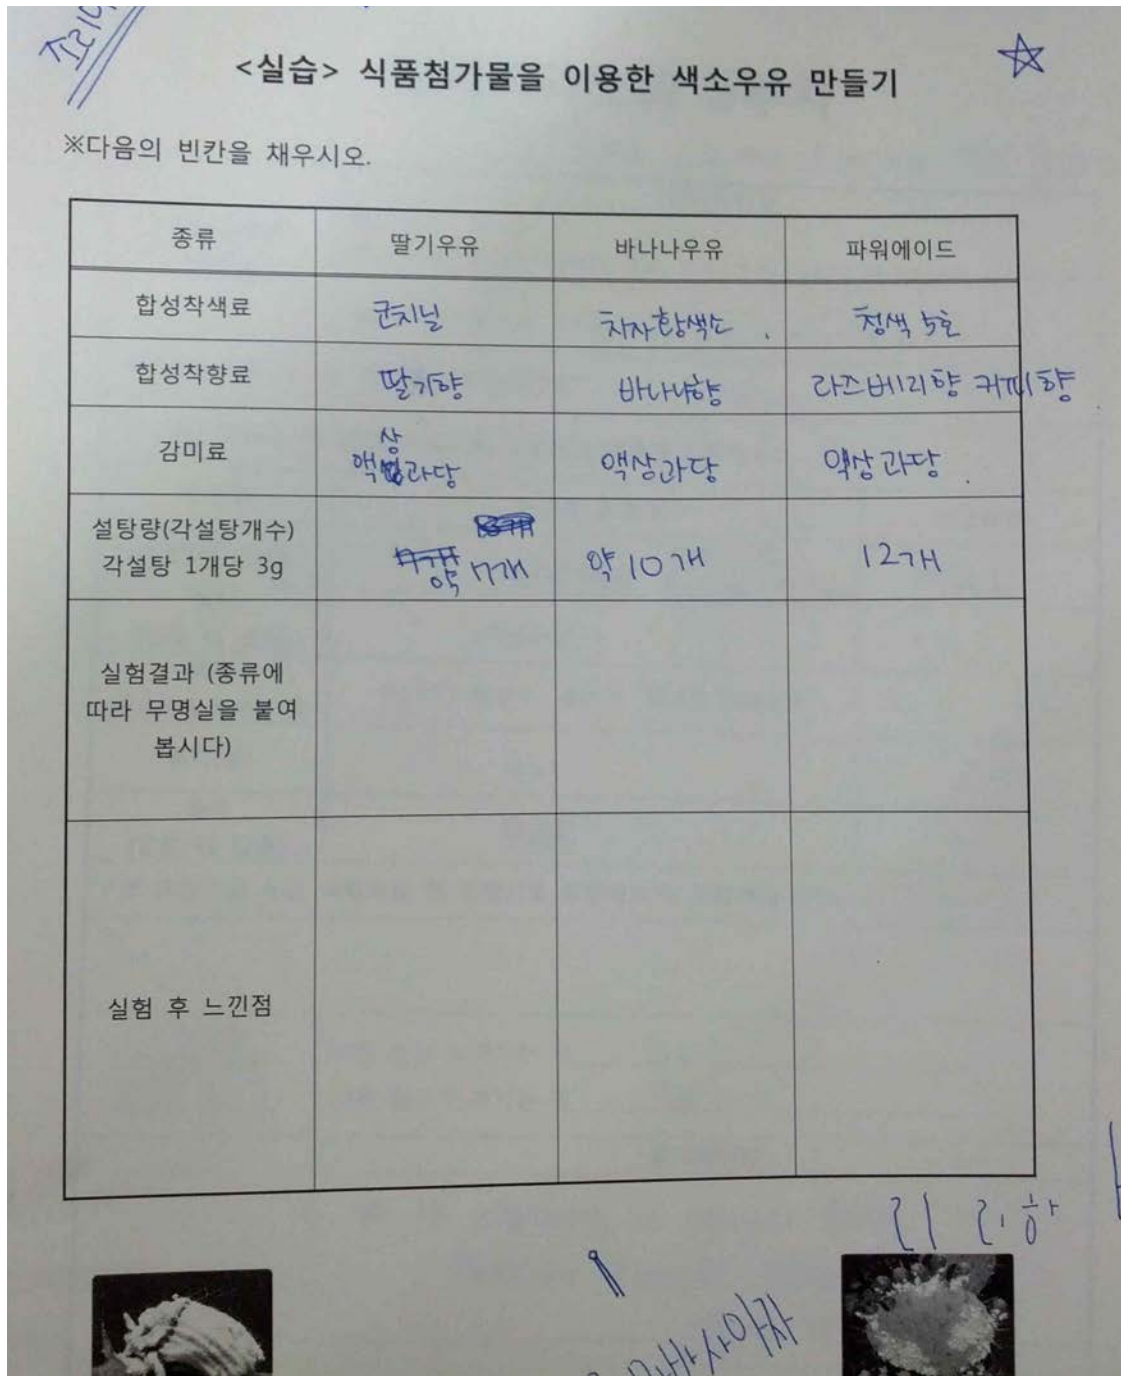 <실습> 식품첨가물을 이용한 색소우유 만들기
※다음의 빈칸을 채우시오.
종류 딸기우유 바나나우유 파워에이드
합성착색료 코치닐 치자황색소 청색 5호
합성착향료 딸기향 바나나향 라즈베리향 커피향
감미료 액상과당 액상과당 액상과당
설탕량(각설탕개수)
각설탕 1개당 3g 약 7개 약 10개 12개
실험결과 (종류에
따라 무명실을 붙여
봅시다)
실험 후 느낀점